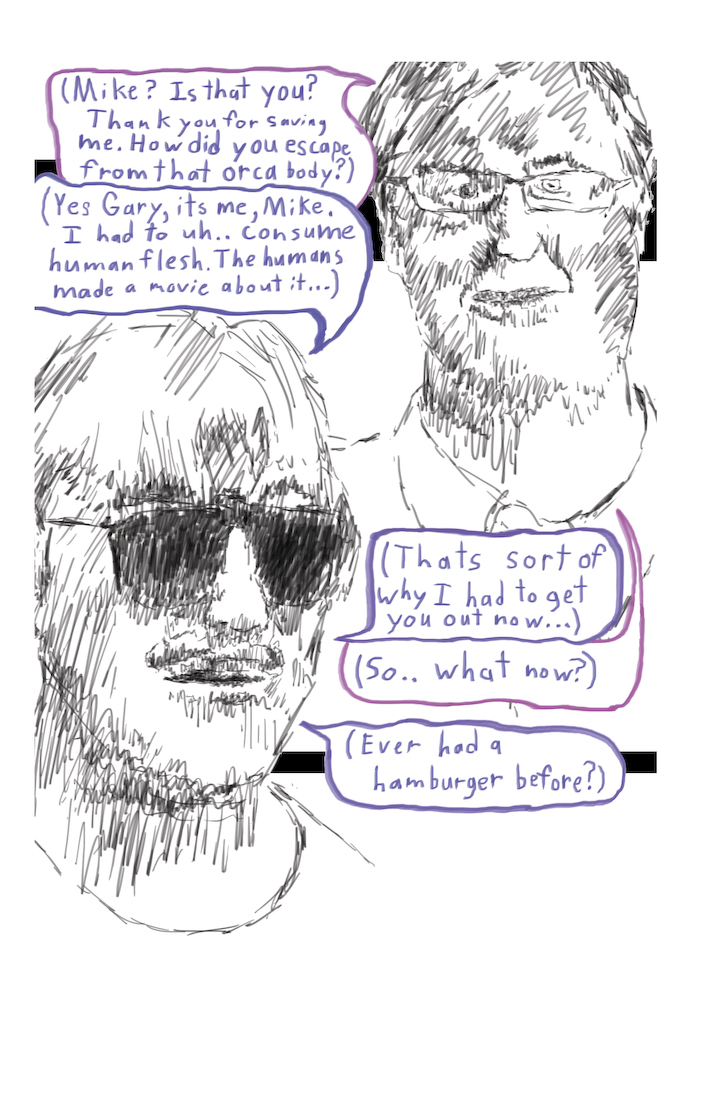 (Mike? Is that you?
Thank you for saving
me. How did you escape
from that orca body?)
(Yes Gary, its me, Mike.
I had to uh.. consume
human flesh. The humans
made a movie about it...)
(Thats sort of
why I had to get
you out now...)
(So.. what now?)
(Ever had a
hamburger before?)